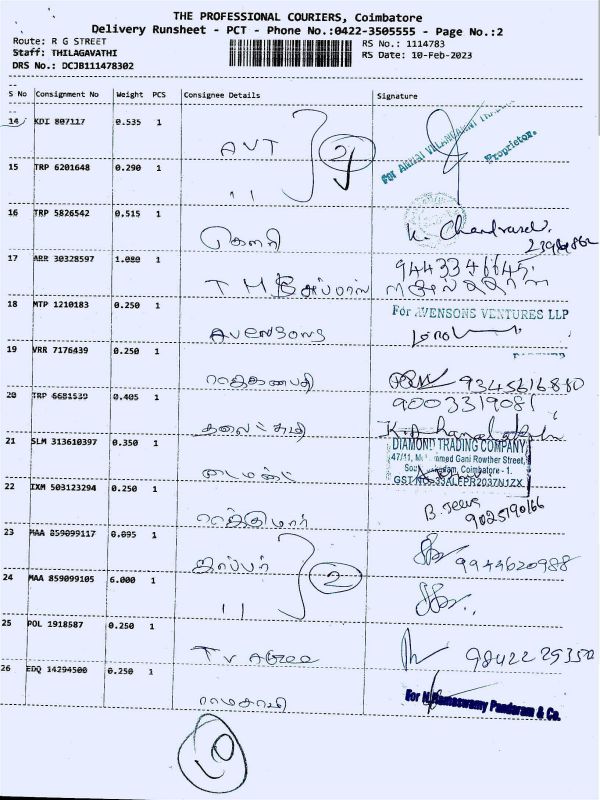 THE PROFESSIONAL COURIERS, Coimbatore
Delivery Runsheet - PCT - Phone No.:0422-3505555 - Page No.:2
Route: R G STREET
Staff: THILAGAVATHI
DRS No.: DCJB111478302
RS No.: 1114783
RS Date: 10-Feb-2023
S No Consignment No Weight PCS Consignee Details Signature
14 KDI 807117 0.535 1
AVT 2
For
Proprietor.
15 TRP 6201648 0.290 1
11
16 TRP 5826542 0.515 1
கௌரி K. Chandrasek
17 ARR 30328597 1.080 1
T M
18 MTP 1210183 0.250 1
Avensons
For AVENSONS VENTURES LLP
19 VRR 7176439 0.250 1
ராஜகணபதி 9345616880
20 TRP 6681539 0.405 1
9003319081
21 SLM 313610397 0.350 1
DIAMOND TRADING COMPANY
47/11, Gani Rowther Street,
Coimbatore - 1.
GST NO:33ALEPR2037N1ZX
22 IXM 503123294 0.250 1
B. Jeeva
9025190166
23 MAA 859099117 0.095 1
2 9944620988
24 MAA 859099105 6.000 1
11
25 POL 1918587 0.250 1
TV
26 EDQ 14294500 0.250 1
ராமசாமி
For N.Ramaswamy Pandaram & Co.